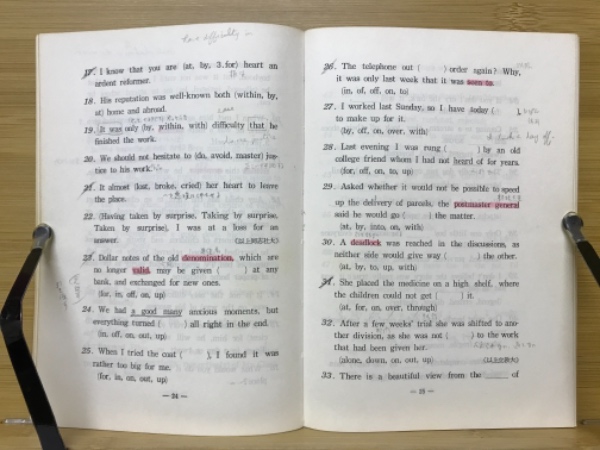 have difficulty in
17. I know that you are (at, by, 3. for) heart an
ardent reformer.
18. His reputation was well-known both (within, by,
at) home and abroad.
19. It was only (by, within, with) difficulty that he
finished the work.
20. We should not hesitate to (do, avoid, master) jus-
tice to his work.
21. It almost (lost, broke, cried) her heart to leave
the place.
22. (Having taken by surprise, Taking by surprise,
Taken by surprise), I was at a loss for an
answer.
23. Dollar notes of the old denomination, which are
no longer valid, may be given ( ) at any
bank, and exchanged for new ones.
(for, in, off, on, up)
24. We had a good many anxious moments, but
everything turned ( ) all right in the end.
(in, off, on, out, up)
25. When I tried the coat ( ), I found it was
rather too big for me.
(for, in, on, out, up)
— 24 —
26. The telephone out ( ) order again? Why,
it was only last week that it was seen to.
(in, of, off, on, to)
27. I worked last Sunday, so I have today ( ),
to make up for it.
(by, off, on, over, with)
28. Last evening I was rung ( ) by an old
college friend whom I had not heard of for years.
(for, off, on, to, up)
29. Asked whether it would not be possible to speed
up the delivery of parcels, the postmaster general
said he would go ( ) the matter.
(at, by, into, on, with)
30. A deadlock was reached in the discussions, as
neither side would give way ( ) the other.
(at, by, to, up, with)
31. She placed the medicine on a high shelf, where
the children could not get ( ) it.
(at, for, on, over, through)
32. After a few weeks' trial she was shifted to ano-
ther division, as she was not ( ) to the work
that had been given her.
(alone, down, on, out, up)
33. There is a beautiful view from the ____ of
— 25 —